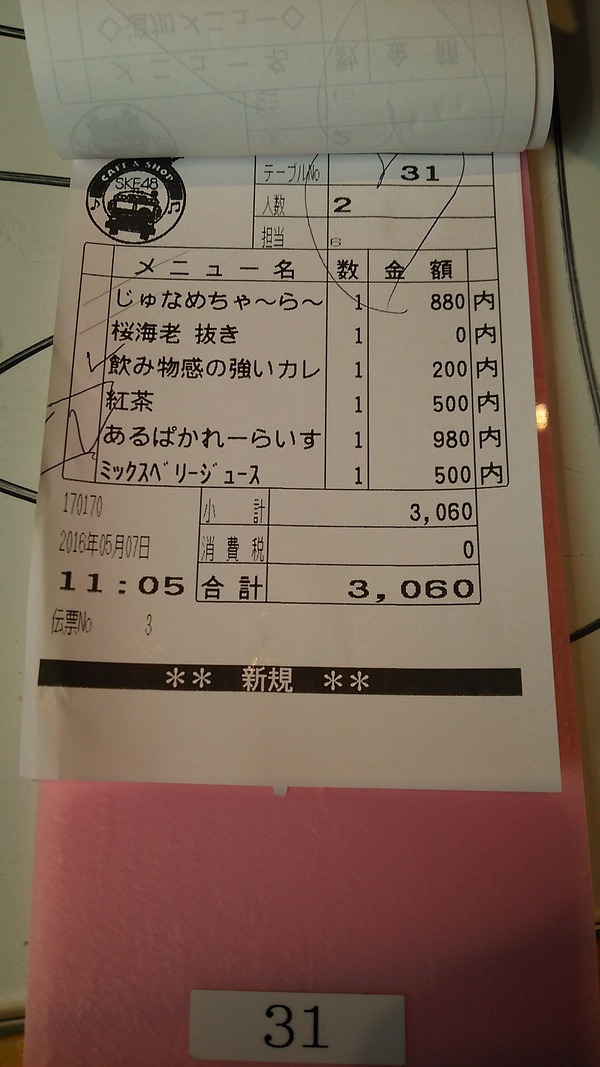 ◇追加メニュー◇
メニュー名 数 金額
CAFE & SHOP
SKE48
テーブルNo 31
人数 2
担当 6
メニュー名 数 金額
じゅなめちゃ～ら～ 1 880 内
桜海老 抜き 1 0 内
飲み物感の強いカレ 1 200 内
紅茶 1 500 内
あるぱかれーらいす 1 980 内
ミックスベリージュース 1 500 内
170170 小計 3,060
2016年05月07日 消費税 0
11:05 合計 3,060
伝票No 3
** 新規 **
31